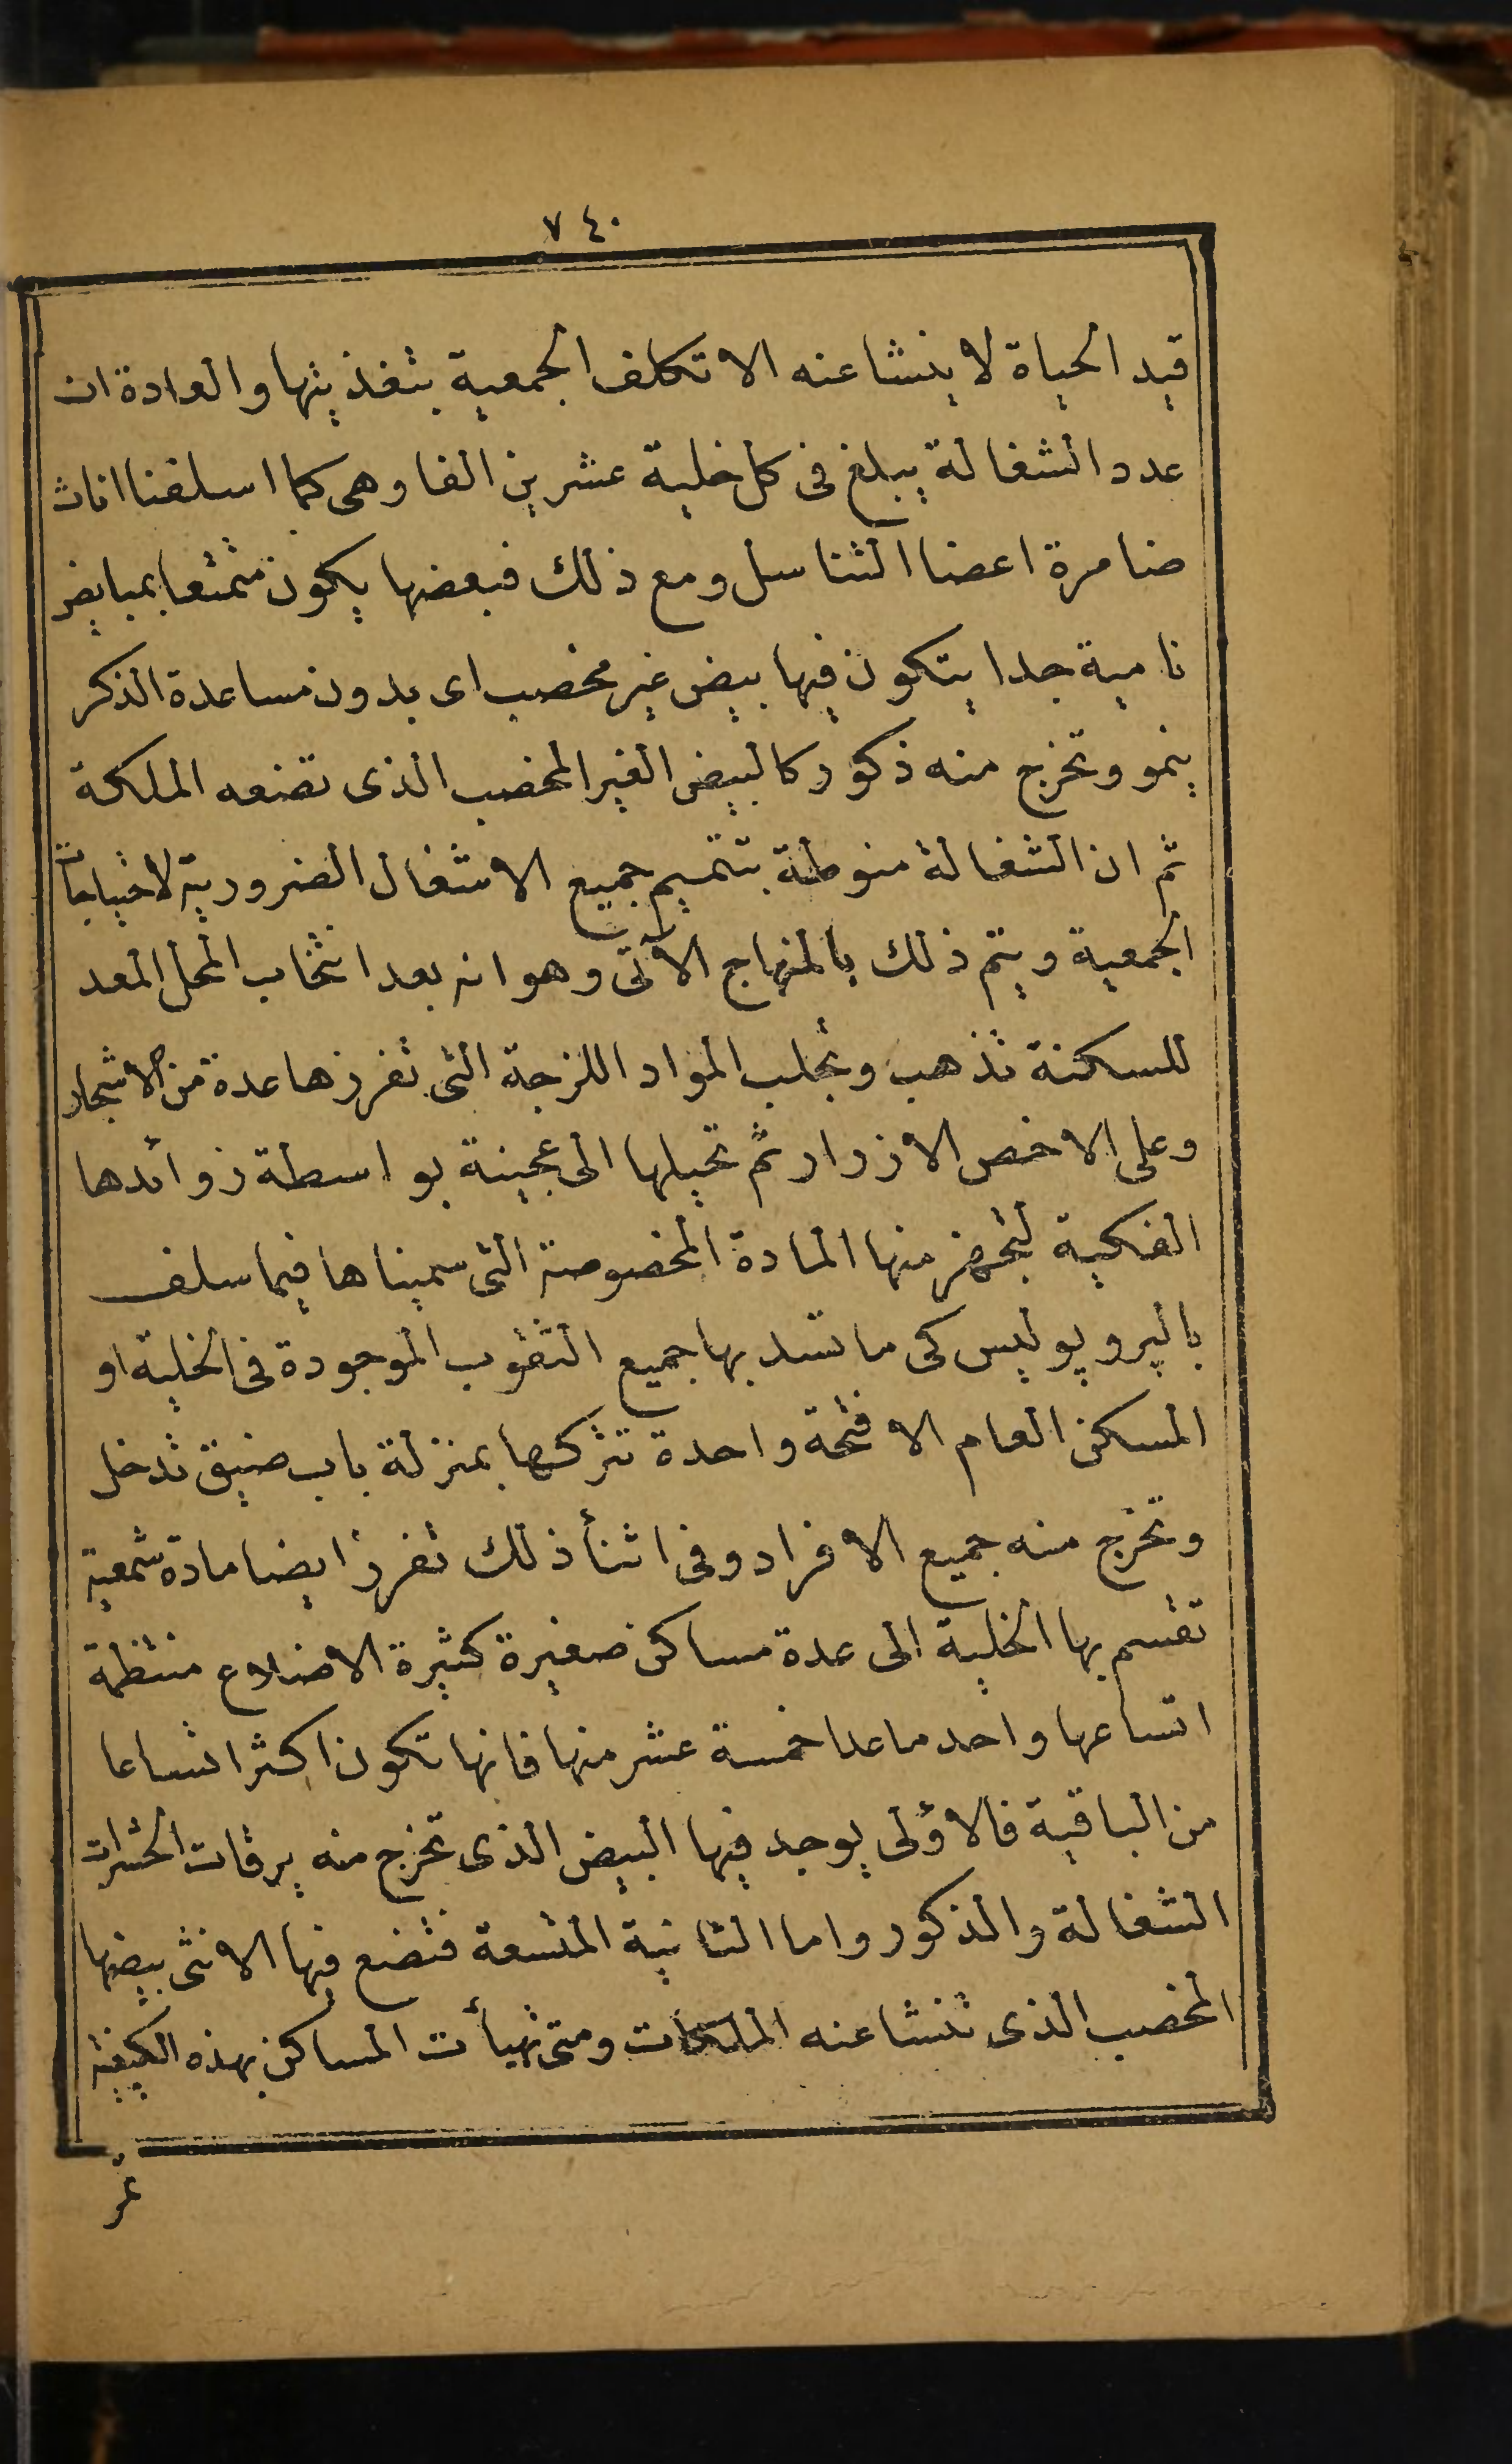 ٧٤٠
قيد الحياة لا ينشا عنه الا تكلف الجمعية بتغذيتها والعادة ان
عدد الشغالة يبلغ فى كل خلية عشرين الفا وهى كما اسلفنا اناث
ضامرة اعضا التناسل ومع ذلك فبعضها يكون متمتعا بمبايض
نامية جدا يتكون فيها بيض غير مخصب اى بدون مساعدة الذكر
ينمو وتخرج منه ذكور كالبيض الغير المخصب الذى تضعه الملكة
ثم ان الشغالة منوطة بتتميم جميع الاشغال الضرورية لاحتياجات
الجمعية ويتم ذلك بالمنهاج الآتى وهو انه بعد انتخاب المحل المعد
للسكنة تذهب وتجلب المواد اللزجة التى تفرزها عدة من الاشجار
وعلى الاخص الازرار ثم تحيلها الى عجينة بواسطة زوائدها
الفكية لتجهز منها المادة المخصوصة التى سميناها فيما سلف
بالپروپوليس كى ما تسد بها جميع الثقوب الموجودة فى الخلية او
المسكن العام الا فتحة واحدة تتركها بمنزلة باب ضيق تدخل
وتخرج منه جميع الافراد وفى اثنأ ذلك تفرز ايضا مادة شمعية
تقسم بها الخلية الى عدة مساكن صغيرة كثيرة الاضلاع منتظمة
اتساعها واحد ماعدا خمسة عشر منها فانها تكون اكثر اتساعا
من الباقية فالاؤلى يوجد فيها البيض الذى تخرج منه يرقات الحشرات
الشغالة والذكور واما الثانية المتسعة فتضع فيها الانثى بيضها
المخصب الذى تنشا عنه الملكات ومتى تهيأت المساكن بهذه الكيفية